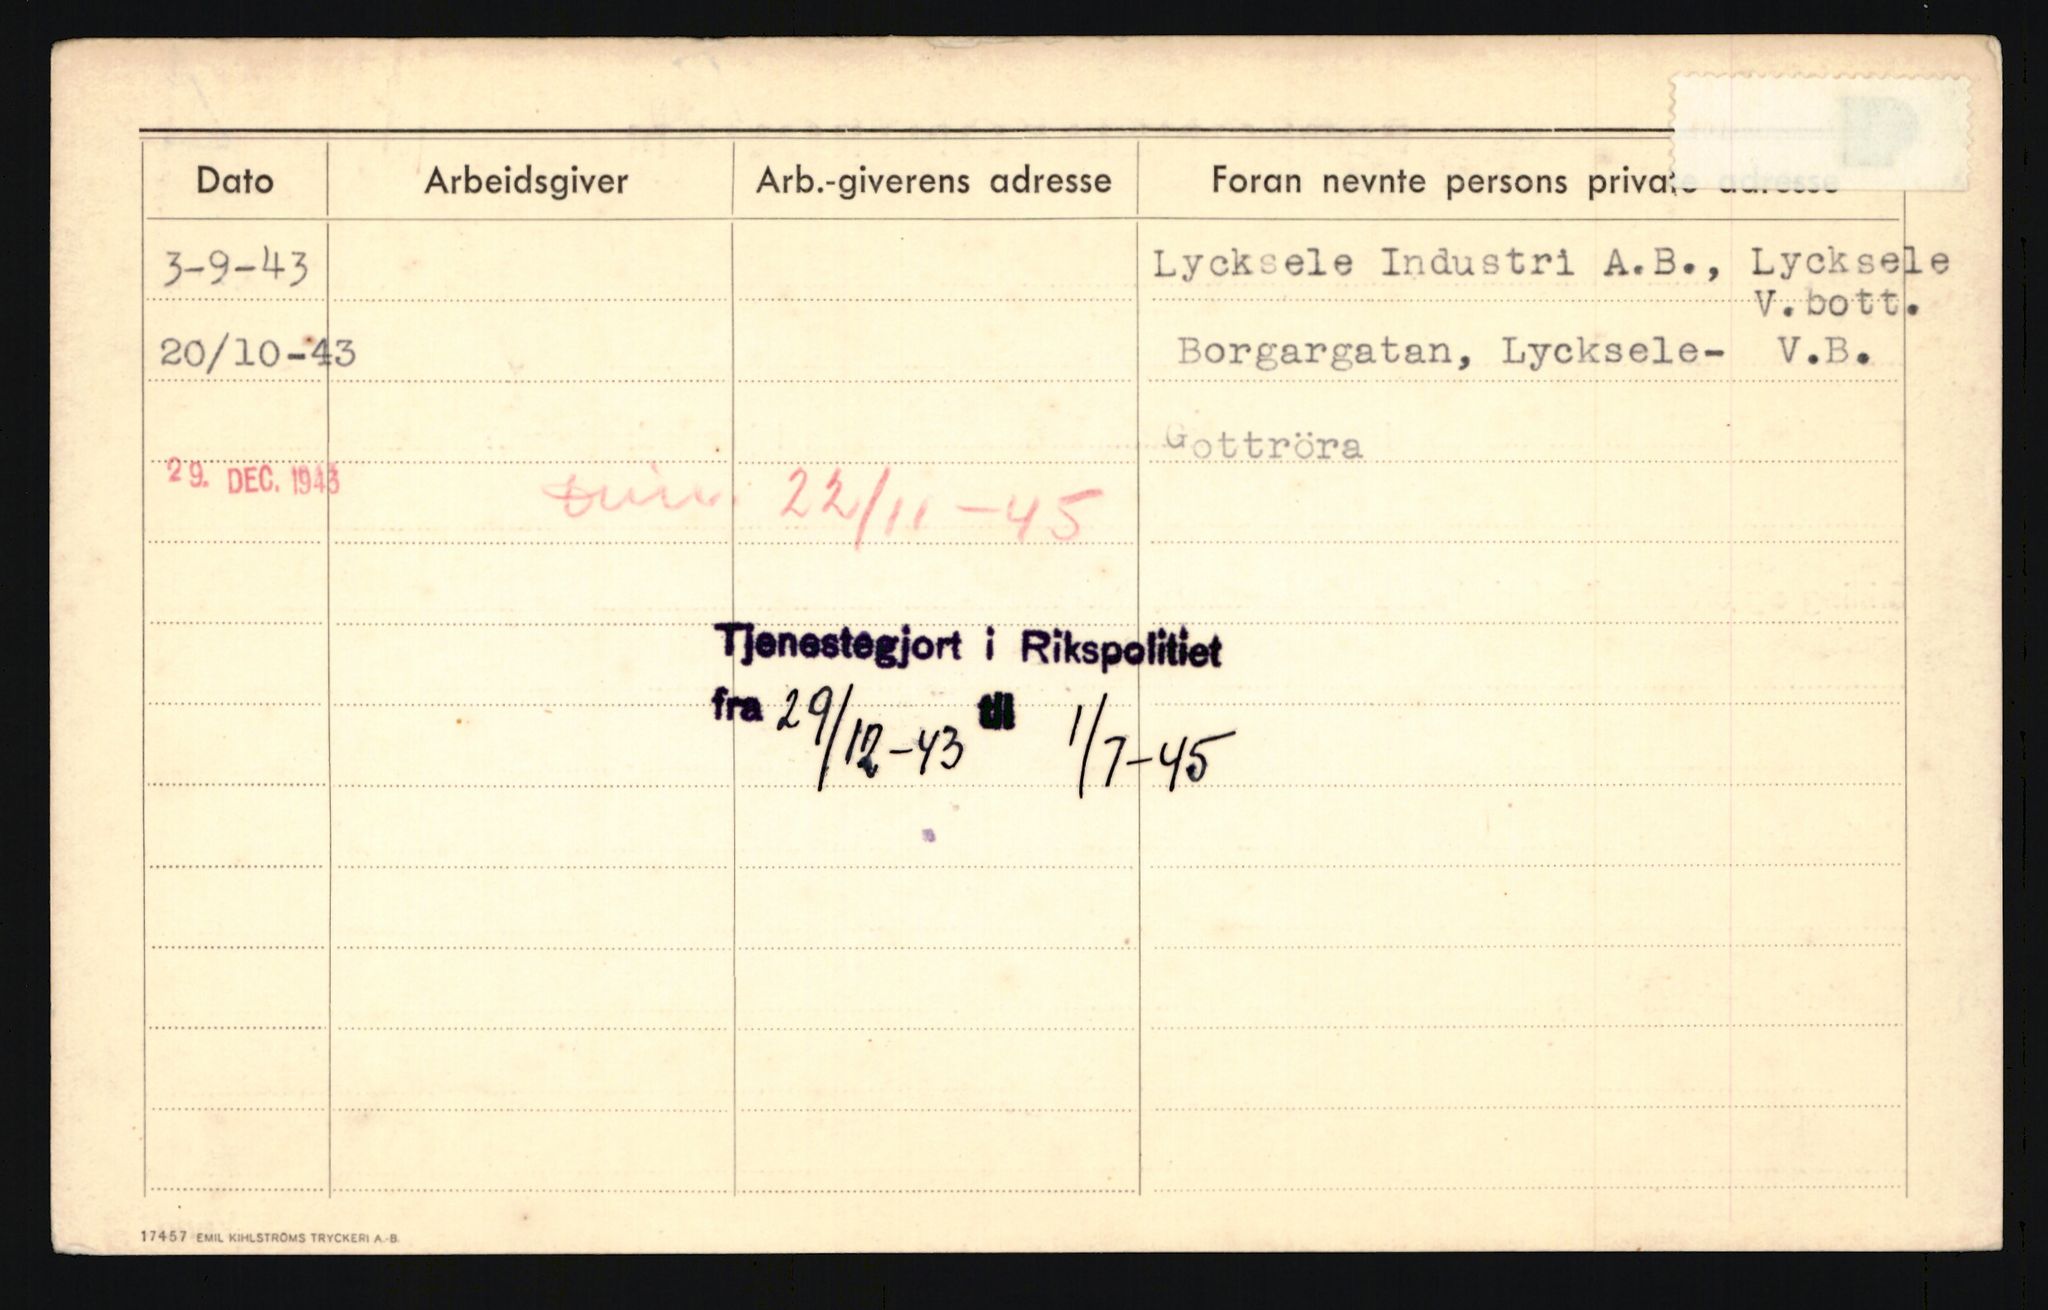 Dato Arbeidsgiver Arb.-giverens adresse Foran nevnte persons private adresse
3-9-43 Lycksele Industri A.B., Lycksele
V.bott.
20/10-43 Borgargatan, Lycksele- V.B.
Gottröra
29. DEC. 1943
22/11-45
Tjenestegjort i Rikspolitiet
fra 29/12-43 til 1/7-45
17457 EMIL KIHLSTRÖMS TRYCKERI A.-B.